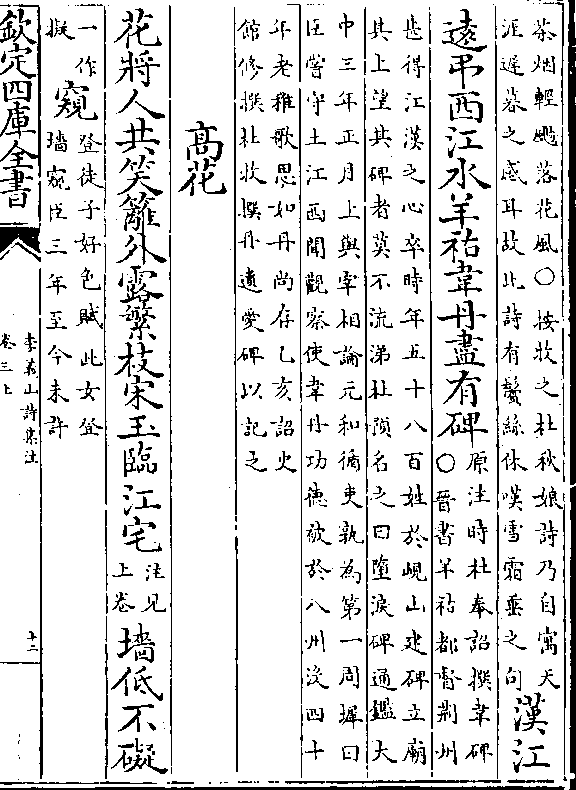 茶烟輕颺落花風○按牧之杜秋娘詩乃自寓天
涯遲暮之感耳故此詩有鬢絲休嘆雪霜垂之句
漢江
遠弔西江水羊祜韋丹盡有碑
原注時杜奉詔撰韋碑
○晉書羊祜都督荆州
甚得江漢之心卒時年五十八百姓於峴山建碑立廟
其上望其碑者莫不流涕杜預名之曰墮淚碑通鑑大
中三年正月上與宰相論元和循吏孰為第一周墀曰
臣嘗守土江西聞觀察使韋丹功德被於八州沒四十
年老稚歌思如丹尚存乙亥詔史
館修撰杜牧撰丹遺愛碑以記之
高花
花將人共笑籬外露繁枝宋玉臨江宅
注見
上卷
墻低不礙
一作
擬
窺
登徒子好色賦此女登
墻窺臣三年至今未許
欽定四庫全書
李義山詩集注
卷三上
十二